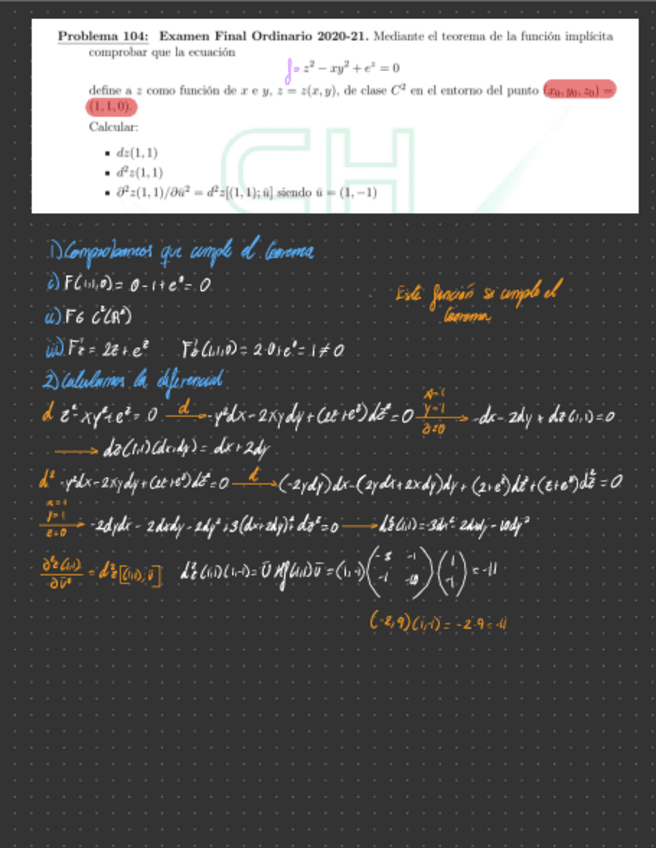 Problema 104: Examen Final Ordinario 2020-21. Mediante el teorema de la función implícita
comprobar que la ecuación
z² − xy² + eᶻ = 0
define a z como función de x e y, z = z(x, y), de clase C² en el entorno del punto (x₀, y₀, z₀) =
(1, 1, 0).
Calcular:
• dz(1, 1)
• d²z(1, 1)
• ∂²z(1, 1)/∂ū² = d²z[(1, 1); ū] siendo ū = (1, −1)
1) Comprobamos que cumple el teorema
i) F(1,1,0) = 0 - 1 + e⁰ = 0
Esta función si cumple el
teorema
ii) F∈ C²(R³)
iii) F'z = 2z + eᶻ F'z(1,1,0) = 2·0 + e⁰ = 1 ≠ 0
2) Calculamos la diferencial
d z² - xy² + eᶻ = 0 —d→ -y²dx - 2xydy + (2z + eᶻ)dz = 0 x=1 y=1 z=0 → -dx - 2dy + dz(1,1) = 0
→ dz(1,1)(dx,dy) = dx + 2dy
d² -y²dx - 2xydy + (2z + eᶻ)dz = 0 —d→ (-2ydy)dx - (2ydx + 2xdy)dy + (2 + eᶻ)dz² + (2z + eᶻ)d²z = 0
x=1 y=1 z=0 → -2dydx - 2dxdy - 2dy² + 3(dx + 2dy)² + d²z = 0 → d²z(1,1) = -3dx² - 2dxdy - 10dy²
∂²z(1,1)/∂ū² = d²z[(1,1), ū] d²z(1,1)(1,-1) = ū Hf(1,1) ū = (1,-1) (-3 -1 / -1 -10) (1 / -1) = -11
(-2, 9)(1,-1) = -2 - 9 = -11